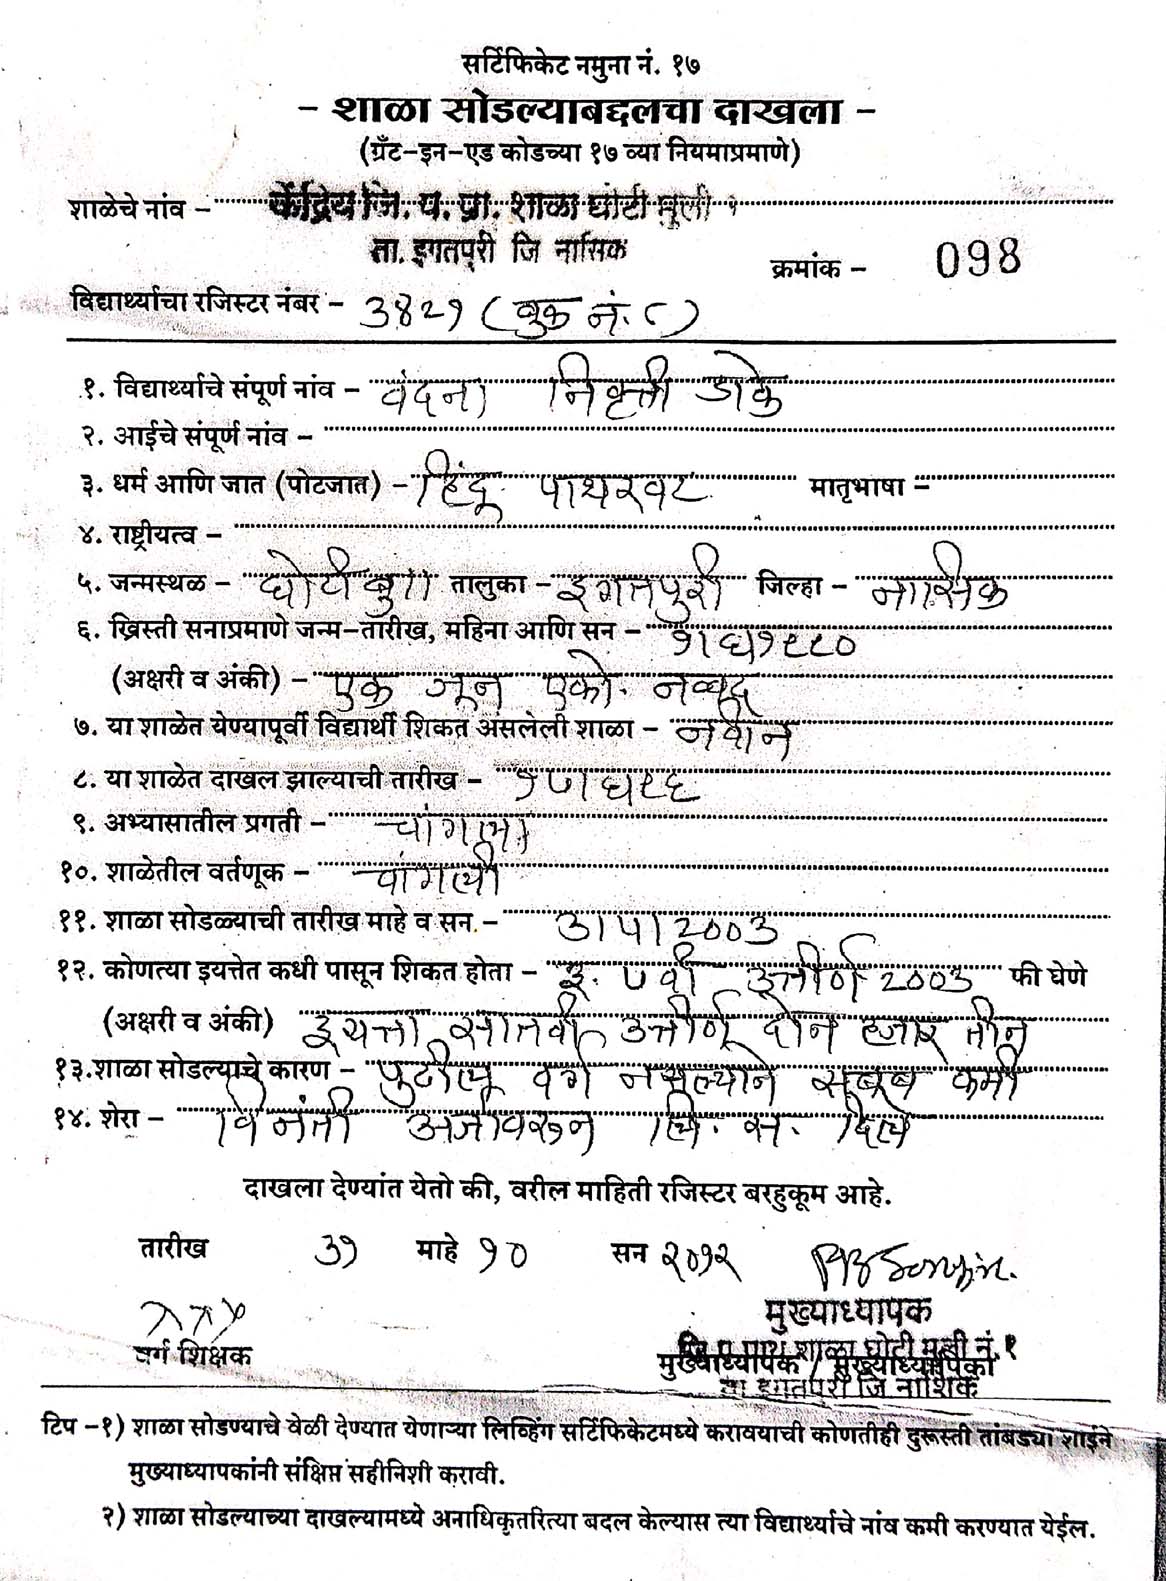 सर्टिफिकेट नमुना नं. १७
- शाळा सोडल्याबद्दलचा दाखला -
(ग्रँट-इन-एड कोडच्या १७ व्या नियमाप्रमाणे)
शाळेचे नांव - केंद्रिय जि. प. प्रा. शाळा घोटी मूली १
ता. इगतपुरी जि नासिक
क्रमांक - 098
विद्यार्थ्याचा रजिस्टर नंबर - ३४२१ (बुक नं. ८)
१. विद्यार्थ्याचे संपूर्ण नांव - वंदना निवृत्ती डोके
२. आईचे संपूर्ण नांव -
३. धर्म आणि जात (पोटजात) - हिंदू. पाथरवट मातृभाषा -
४. राष्ट्रीयत्व -
५. जन्मस्थळ - घोटी बु।। तालुका - इगतपुरी जिल्हा - नासिक
६. ख्रिस्ती सनाप्रमाणे जन्म-तारीख, महिना आणि सन - १।६।१९९०
(अक्षरी व अंकी) - एक जून एको. नव्वद
७. या शाळेत येण्यापूर्वी विद्यार्थी शिकत असलेली शाळा - नवीन
८. या शाळेत दाखल झाल्याची तारीख - १७।६।९६
९. अभ्यासातील प्रगती - चांगली
१०. शाळेतील वर्तणूक - चांगली
११. शाळा सोडळ्याची तारीख माहे व सन. - ३।५।२००३
१२. कोणत्या इयत्तेत कधी पासून शिकत होता - इ. ७ वी उत्तीर्ण २००३ फी घेणे
(अक्षरी व अंकी) इयत्ता सातवी उत्तीर्ण दोन हजार तीन
१३.शाळा सोडल्याचे कारण - पुढील वर्ग नसल्याने सबब कमी
१४. शेरा - विनंती अर्जावरून लि. स. दिले
दाखला देण्यांत येतो की, वरील माहिती रजिस्टर बरहुकूम आहे.
तारीख ३१ माहे १० सन २०१२
मुख्याध्यापक
वर्ग शिक्षक
जि प प्राथ शाळा घोटी मुली नं. १
मुख्याध्यापक / मुख्याध्यापिका
ता इगतपुरी जि नाशिक
टिप -१) शाळा सोडण्याचे वेळी देण्यात येणाऱ्या लिव्हिंग सर्टिफिकेटमध्ये करावयाची कोणतीही दुरूस्ती तांबड्या शाईने
मुख्याध्यापकांनी संक्षिप्त सहीनिशी करावी.
२) शाळा सोडल्याच्या दाखल्यामध्ये अनाधिकृतरित्या बदल केल्यास त्या विद्यार्थ्याचे नांव कमी करण्यात येईल.